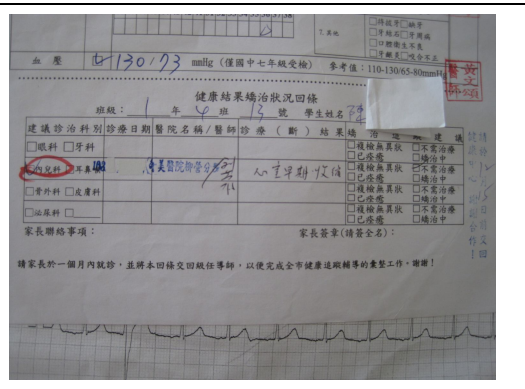 7.其他
□待拔牙□缺牙
□牙結石□牙周病
□口腔衛生不良
□牙齦炎□咬合不正
血壓 130/73 mmHg (僅國中七年級受檢) 參考值:110-130/65-80mmHg
健康結果矯治狀況回條
班級: 1 年 4 班 13 號 學生姓名
建議診治科別 診療日期 醫院名稱/醫師 診療(斷)結果 矯治 建議
□眼科 □牙科 □複檢無異狀 □不需治療
□已痊癒 □矯治中
內兒科 □耳鼻 醫院 分 心室早期收縮 □複檢無異狀 不需治療
□已痊癒 □矯治中
□骨外科 □皮膚科 □複檢無異狀 □不需治療
□已痊癒 □矯治中
□泌尿科 □ □複檢無異狀 □不需治療
□已痊癒 □矯治中
家長聯絡事項: 家長簽章(請簽全名):
請家長於一個月內就診,並將本回條交回級任導師,以便完成全市健康追蹤輔導的彙整工作,謝謝!